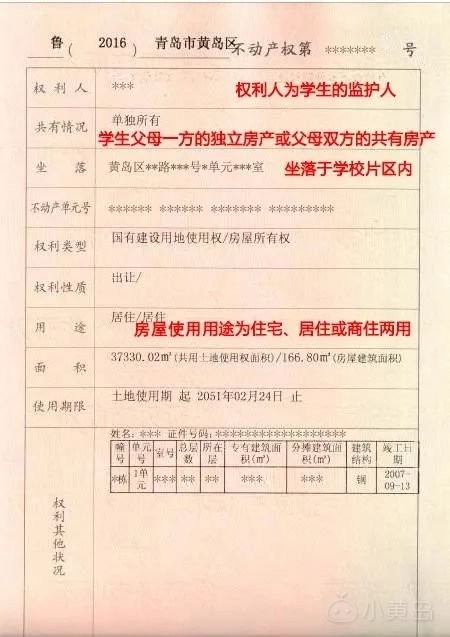 鲁 ( 2016 ) 青岛市黄岛区 不动产权第 ******* 号
权利人 *** 权利人为学生的监护人
共有情况 单独所有
学生父母一方的独立房产或父母双方的共有房产
坐落 黄岛区**路***号*单元***室 坐落于学校片区内
不动产单元号 ****** ****** ******* *********
权利类型 国有建设用地使用权/房屋所有权
权利性质 出让/
用途 居住/居住
房屋使用用途为住宅、居住或商住两用
面积 37330.02㎡(共用土地使用权面积)/166.80㎡(房屋建筑面积)
使用期限 土地使用期 起 2051年02月24日 止
权利其他状况
姓名: *** 证件号码:*******************
幢号 单元号 室号 总层数 所在层 专有建筑面积(㎡) 分摊建筑面积(㎡) 建筑结构 竣工日期
*栋 1单元 *** ** ** *** *** 钢 2007-09-13
小黄岛